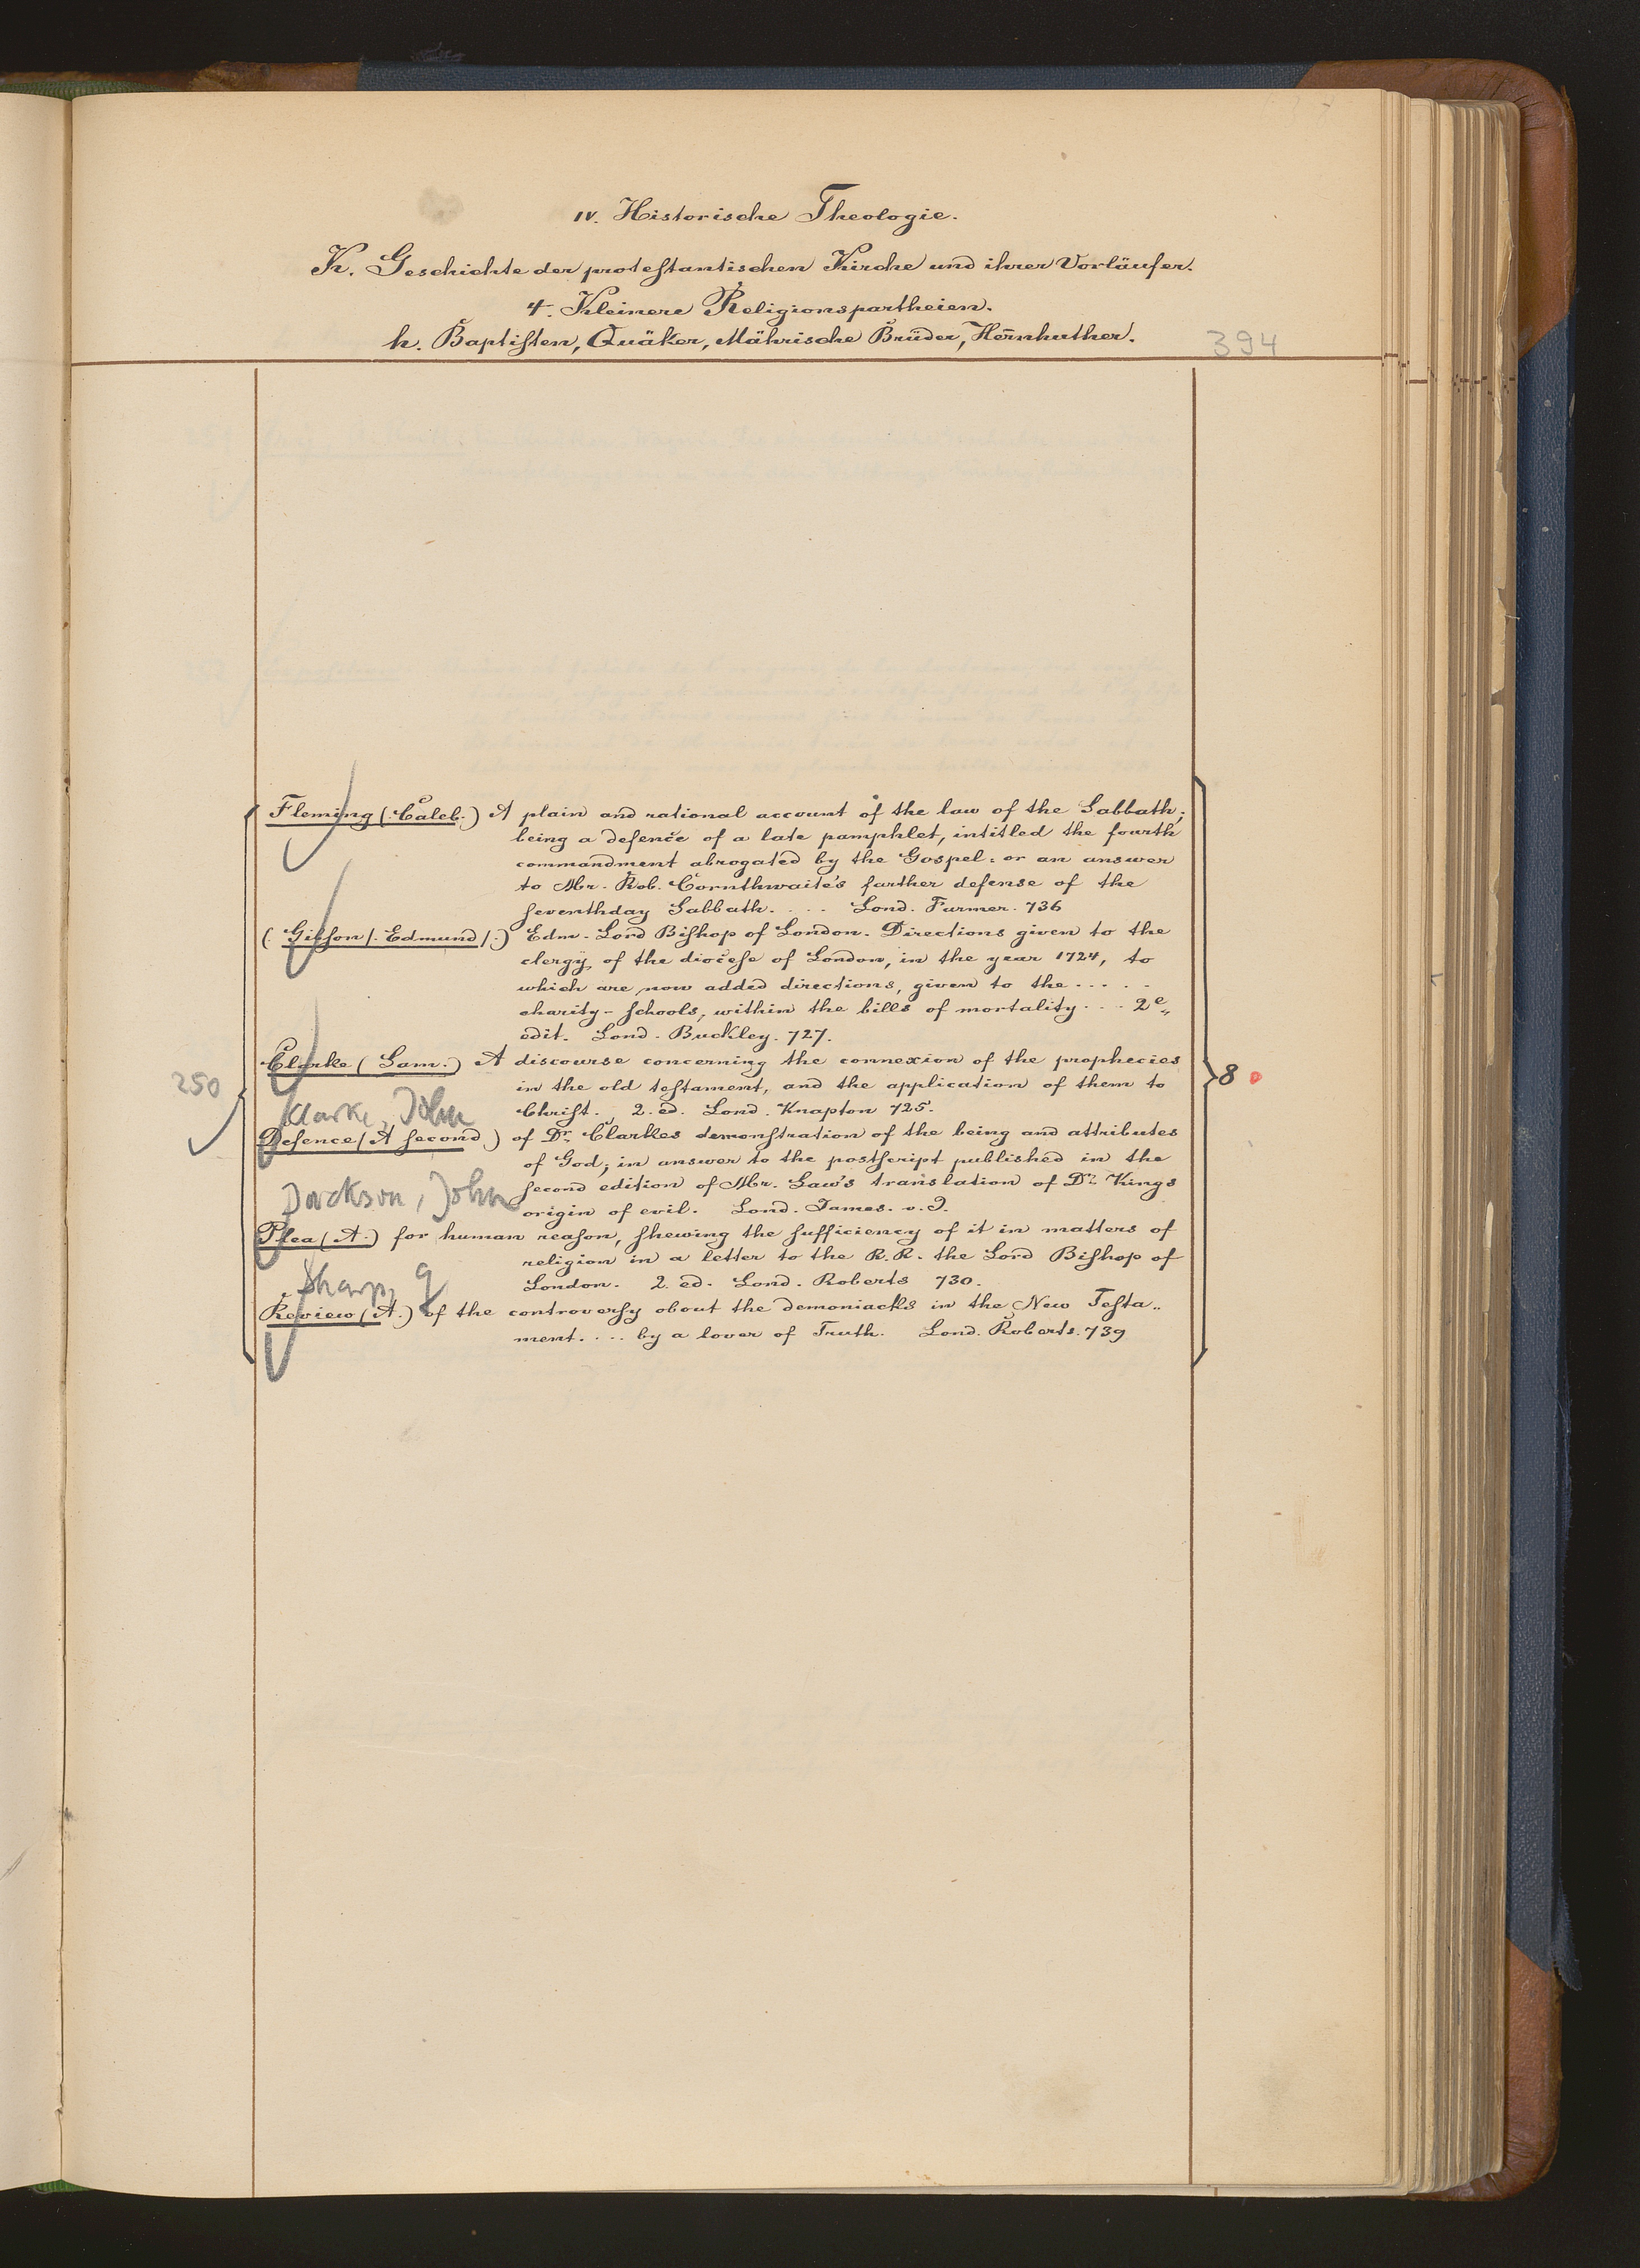 IV. Historische Theologie.
K. Geschichte der protestantischen Kirche und ihrer Vorläufer.
4. Kleinere Religionspartheien.
h. Baptisten, Quäker, Mährische Brüder, Herrnhuther.
394
Fleming (Caleb.) A plain and rational account of the law of the Sabbath;
being a defence of a late pamphlet, intitled the fourth
commandment abrogated by the Gospel: or an answer
to Mr. Rob. Cornthwaite's farther defense of the
seventhday Sabbath. . . . Lond. Furmer. 736
(. Gibson /. Edmund /.) Edm. Lord Bishop of London. Directions given to the
clergy of the diocese of London, in the year 1724, to
which are now added directions, given to the . . . .
charity-schools, within the bills of mortality . . . 2e
edit. Lond. Buckley. 727.
Clarke (Sam.) A discourse concerning the connexion of the prophecies
in the old testament, and the application of them to
Christ. 2. ed. Lond. Knapton 725.
250
8
Clarke, John
Defence (A second.) of Dr. Clarkes demonstration of the being and attributes
of God; in answer to the postscript published in the
second edition of Mr. Law's translation of Dr. Kings
origin of evil. Lond. James. o. J.
Jackson, John
Plea (A.) for human reason, shewing the sufficiency of it in matters of
religion in a letter to the R. R. the Lord Bishop of
London. 2. ed. Lond. Roberts 730.
Sharp, G
Review (A.) of the controversy about the demoniacks in the New Testa..
ment. . . . by a lover of Truth. Lond. Roberts. 739